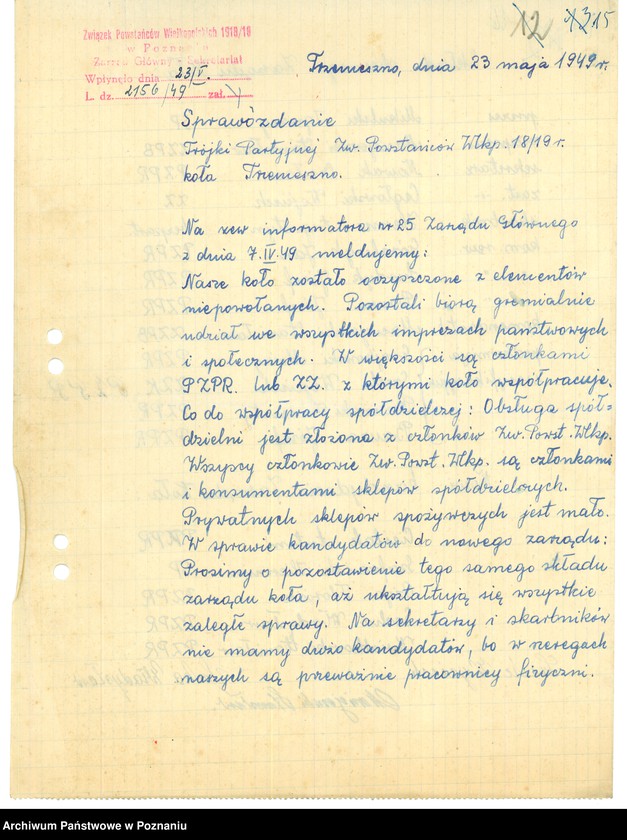 12 13 15
Związek Powstańców Wielkopolskich 1918/19
w Poznaniu
Zarząd Główny - Sekretariat
Wpłynęło dnia 23/V.
L. dz. 2156/49 zał.
Trzemeszno, dnia 23 maja 1949 r.
Sprawozdanie
Trójki Partyjnej Zw. Powstańców Wlkp. 18/19 r.
koła Trzemeszno.
Na zew informatora nr 25 Zarządu Głównego
z dnia 7.IV.49 meldujemy:
Nasze koło zostało oczyszczone z elementów
niepowołanych. Pozostali biorą gremialnie
udział we wszystkich imprezach państwowych
i społecznych. W większości są członkami
PZPR. lub ZZ. z którymi koło współpracuje.
Co do współpracy spółdzielczej: Obsługa spół=
dzielni jest złożona z członków Zw. Powst. Wlkp.
Wszyscy członkowie Zw. Powst. Wlkp. są członkami
i konsumentami sklepów spółdzielczych.
Prywatnych sklepów spożywczych jest mało.
W sprawie kandydatów do nowego zarządu:
Prosimy o pozostawienie tego samego składu
zarządu koła, aż ukształtują się wszystkie
zaległe sprawy. Na sekretarzy i skarbników
nie mamy dużo kandydatów, bo w szeregach
naszych są przeważnie pracownicy fizyczni.
Archiwum Państwowe w Poznaniu